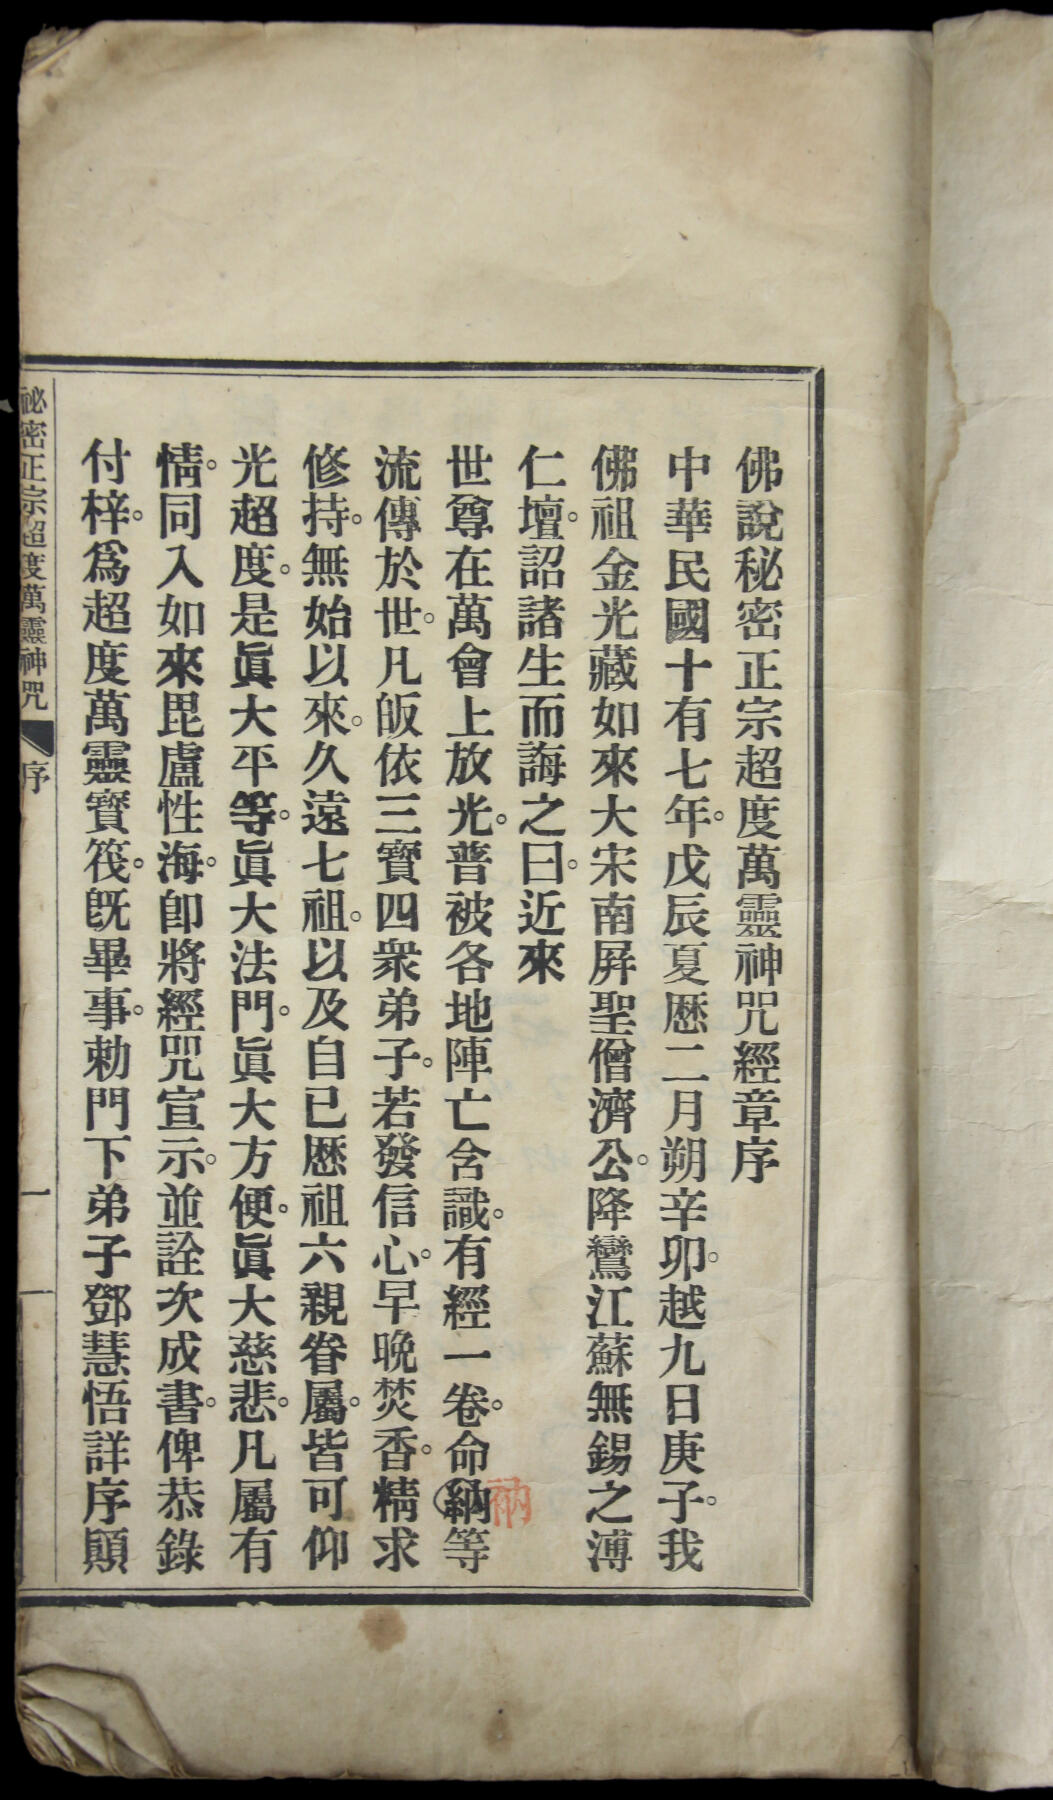 佛說秘密正宗超度萬靈神咒經章序
中華民國十有七年。戊辰夏歷二月朔辛卯。越九日庚子。我
佛祖金光藏如來大宋南屛聖僧濟公。降鸞江蘇無錫之溥
仁壇。詔諸生而誨之曰。近來
世尊在萬會上放光。普被各地陣亡含識。有經一卷。命納等
衲
流傳於世。凡皈依三寶四衆弟子。若發信心。早晚焚香。精求
修持。無始以來。久遠七祖。以及自已歷祖六親眷屬。皆可仰
光超度。是眞大平等。眞大法門。眞大方便。眞大慈悲。凡屬有
情。同入如來毘盧性海。卽將經咒宣示。並詮次成書。俾恭錄
付梓。爲超度萬靈寶筏。旣畢事。勅門下弟子鄧慧悟詳序顚
祕密正宗超度萬靈神咒 序 一